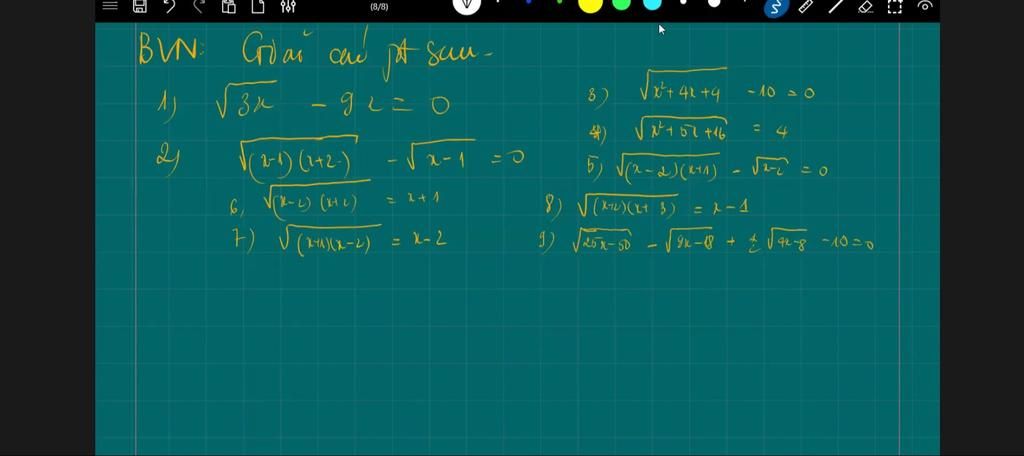 (8/8)
BVN: Giải các pt sau.
1) √3x - 9x = 0
2) √(x-1)(x+2) - √x-1 = 0
3) √x²+4x+4 - 10 = 0
4) √x²+5x+16 = 4
5) √(x-2)(x+1) - √x-2 = 0
6, √(x-2)(x+2) = x+1
7) √(x+1)(x-2) = x-2
8) √(x+2)(x+3) = x-1
9) √25x-50 - √9x-18 + ½√4x-8 - 10 = 0